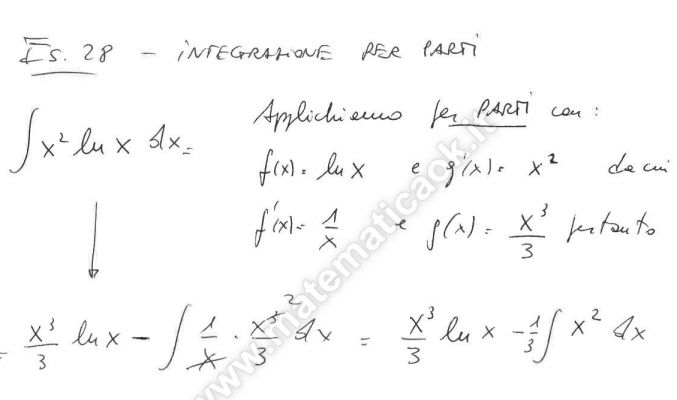 Es. 28 - INTEGRAZIONE PER PARTI
∫ x² ln x dx =
Applichiamo per PARTI con:
f(x) = ln x e g'(x) = x² da cui
f'(x) = 1/x e g(x) = x³/3 pertanto
= x³/3 ln x - ∫ 1/x · x³/3 dx = x³/3 ln x - 1/3 ∫ x² dx
www.matematicaok.it